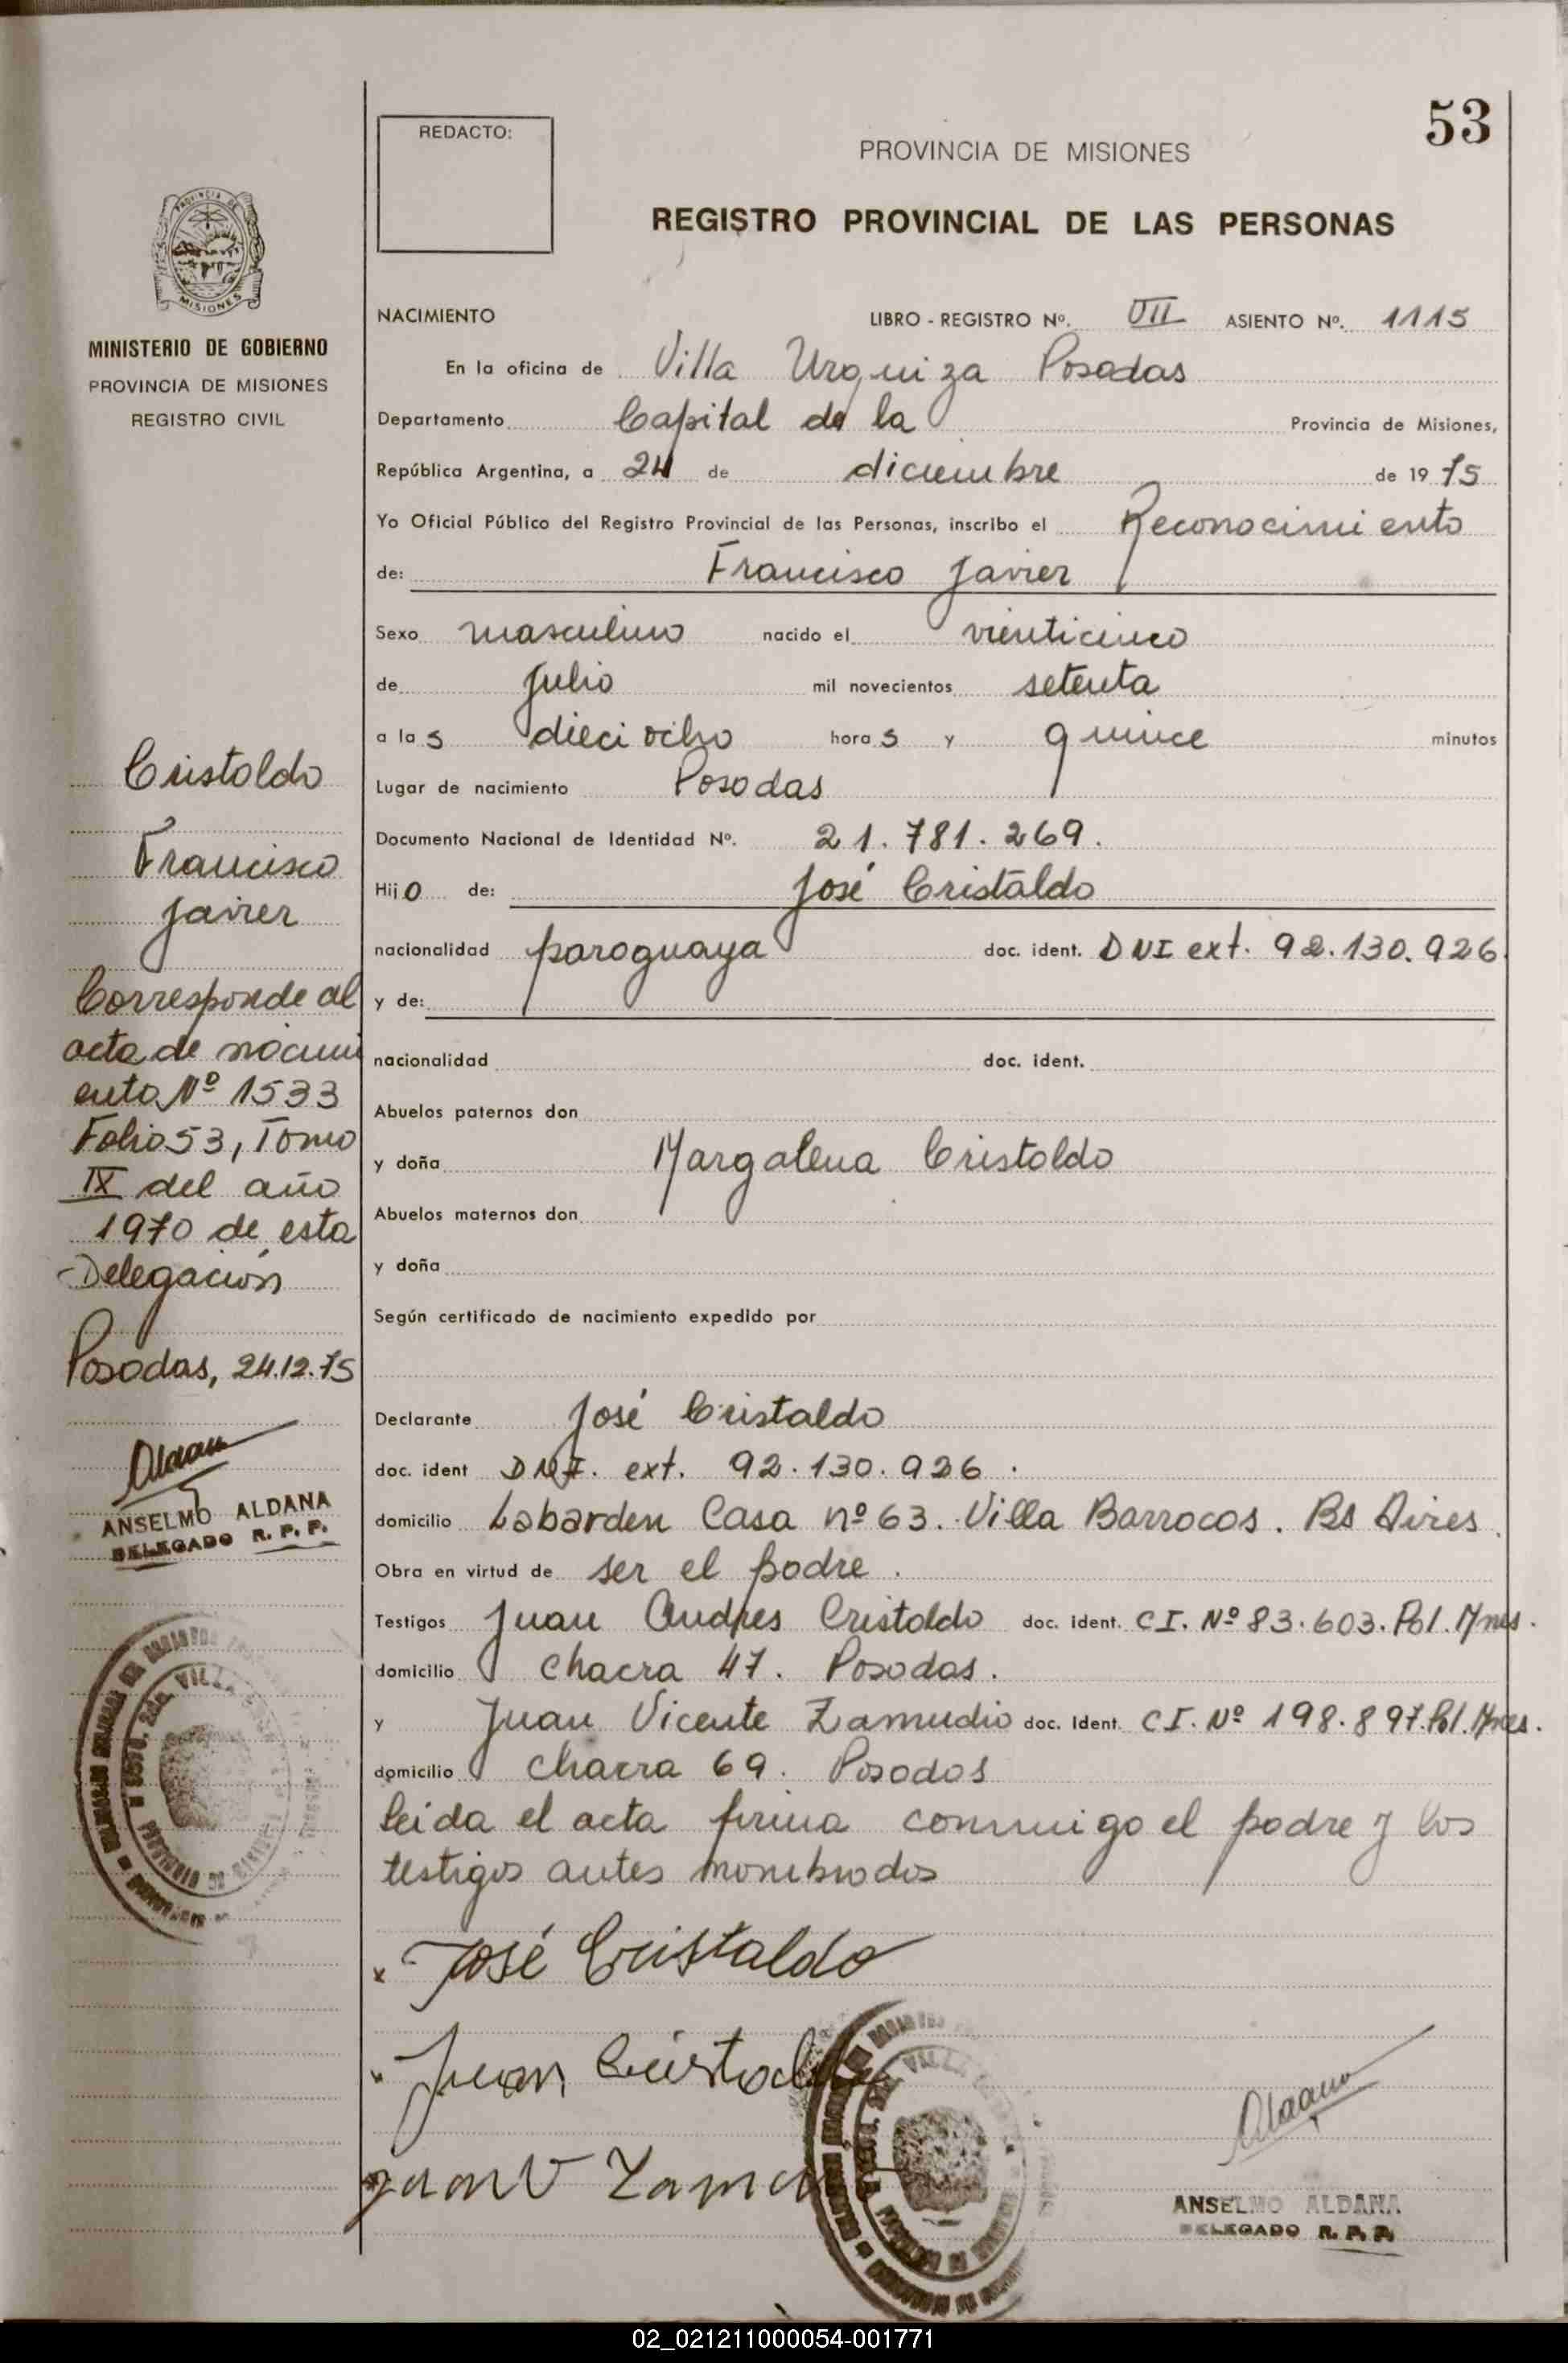 53
REDACTO:
PROVINCIA DE MISIONES
REGISTRO PROVINCIAL DE LAS PERSONAS
PROVINCIA DE
MISIONES
MINISTERIO DE GOBIERNO
PROVINCIA DE MISIONES
REGISTRO CIVIL
NACIMIENTO LIBRO - REGISTRO Nº. VII ASIENTO Nº. 1115
En la oficina de Villa Urquiza Posadas
Departamento Capital de la Provincia de Misiones,
República Argentina, a 24 de diciembre de 1975
Yo Oficial Público del Registro Provincial de las Personas, inscribo el Reconocimiento
de: Francisco Javier
Sexo masculino nacido el vienticinco
de julio mil novecientos setenta
a las dieciocho horas y quince minutos
Lugar de nacimiento Posadas
Documento Nacional de Identidad Nº. 21.781.269.
Hijo de: José Cristaldo
nacionalidad paraguaya doc. ident. DNI ext. 92.130.926
y de:
nacionalidad doc. ident.
Abuelos paternos don
y doña Margalena Cristaldo
Abuelos maternos don
y doña
Según certificado de nacimiento expedido por
Declarante José Cristaldo
doc. ident DNI. ext. 92.130.926.
domicilio Labarden Casa nº 63. Villa Barrocas. Bs Aires.
Obra en virtud de ser el padre.
Testigos Juan Andres Cristaldo doc. ident. CI. Nº 83.603. Pol. Mnes.
domicilio Chacra 47. Posadas.
y Juan Vicente Zamudio doc. Ident. CI. Nº 198.897. Pol. Mnes.
domicilio Chacra 69. Posadas
leida el acta firma conmigo el padre y los
testigos antes nombrados
x José Cristaldo
Juan Cristaldo
Juan V Zamu
Aldana
ANSELMO ALDANA
DELEGADO R. P. P.
Cristaldo
Francisco
Javier
Corresponde al
acta de nacimi
ento Nº 1533
Folio 53, Tomo
IX del año
1970 de esta
Delegación
Posadas, 24.12.75
Aldana
ANSELMO ALDANA
DELEGADO R. P. P.
02_021211000054-001771